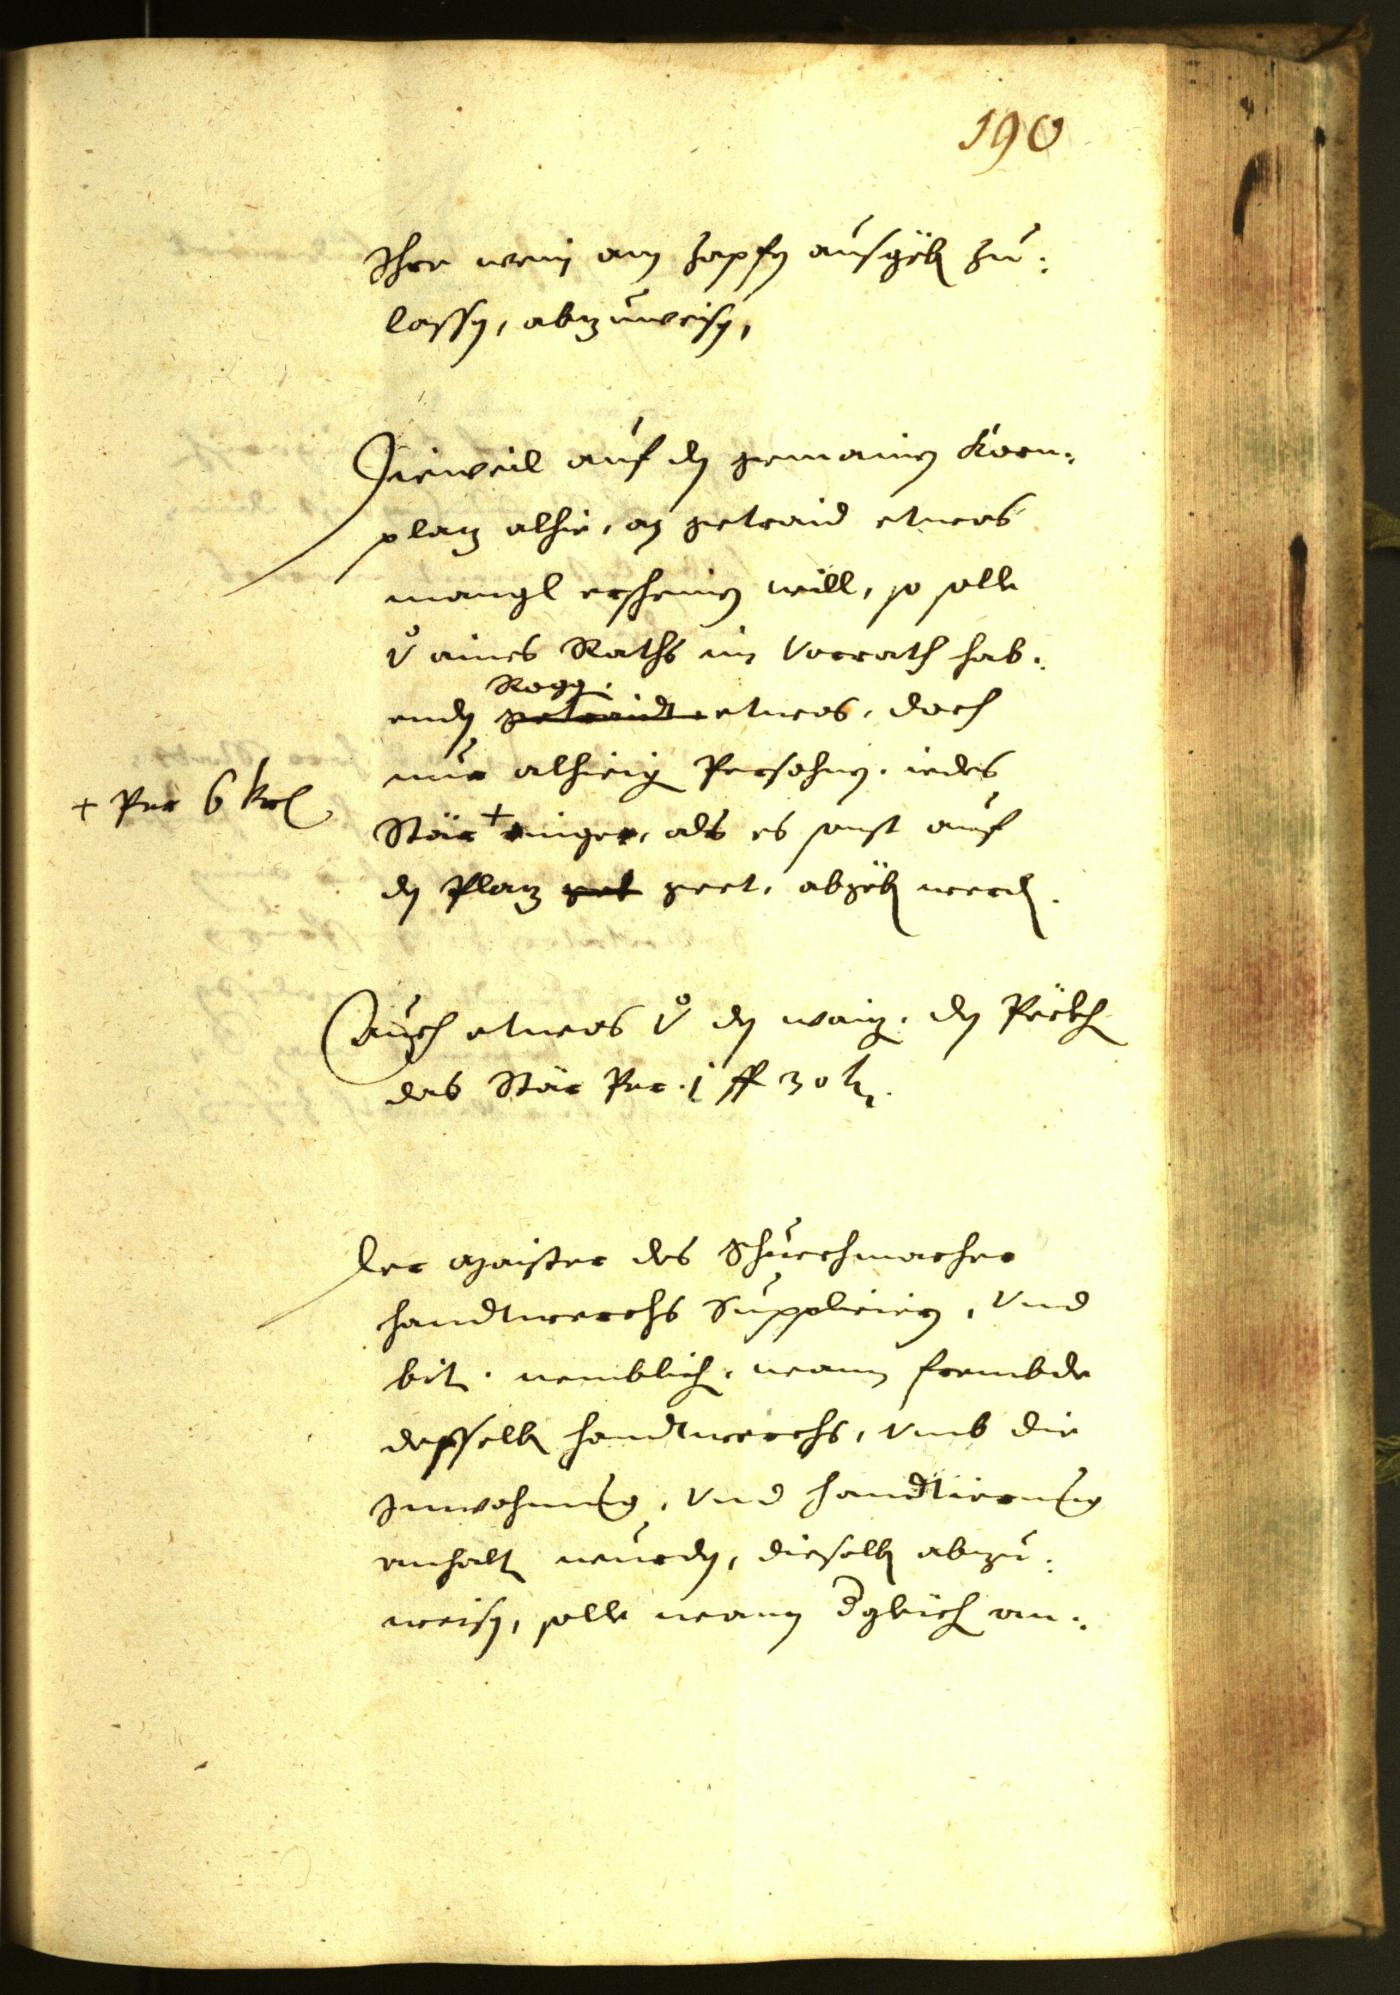 190
Ihre wein am zapfen ausgeben zu:
lassen, abzuweisen,
Dieweil auf den gemainen Korn:
plaz alhie, an getraid etwas
mangl erscheinen will, so solle
v aines Raths in Vorrath hab:
enden getraidt etwas, doch
Rogg.
nur alhieig Persohnen, iedes
+ Per 6 kr
Stär + ringer, als es sonst auf
den Plaz get geet, abgeben werden.
Auch etwas v den waiz, den Pökhen
das Stär Per 1 fl 30 kr.
Der Maister des Schuechmacher
handtwerchs Supplicieren, Vnd
bit. nemblich, wann frembde
desselben handtwerchs, vmb die
Inwohnung, Vnd handtierung
anhalten wurden, dieselben abzu:
weisen, solle wann dergleichen an: